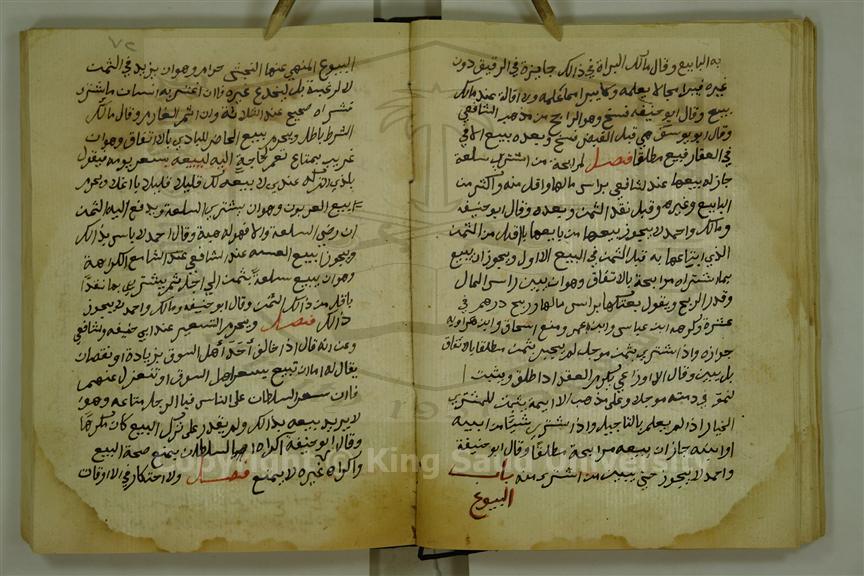 به البايع وقال مالك البراة في ذالك جايزة في الرقيق دون
غيره فيبرا مما لا يعلمه ولا يبرا مما علمه والاقالة عند مالك
بيع وقال ابو حنيفه فسخ وهو الراجح من مذهب الشافعي
وقال ابو يوسف هي قبل القبض فسخ وبعده بيع الا في
في العقار فبيع مطلقا فصل المرابحة من اشترى سلعة
جاز له بيعها عند الشافعي براس مالها واقل منه واكثر من
البايع وغيره وقبل نقد الثمن وبعده وقال ابو حنيفه
ومالك واحمد لا يجوز بيعها من بايعها باقل من الثمن
الذي ابتاعها به قبل الثمن في البيع الاول ويجوز ان يبيع
بما اشتراه مرابحة بالاتفاق وهو ان يبين راس المال
وقدر الربح ويقول بعتكها براس مالها وربح درهم في
عشرة وكرهه ابن عباس وابن عمر ومنع اسحاق وابن راهويه
جوازه واذا اشترى بثمن موجل لم يخبر بثمن مطلقا بالاتفاق
بل يبين وقال الاوزاعي يلزم العقد اذا طلق ويثبت
الثمن في ذمته موجلا وعلى مذهب الايمة يثبت للمشتري
الخيار اذا لم يعلم بالتاجيل واذا اشترى شيئا من ابيه
او ابنه جاز ان يبيعه مرابحة مطلقا وقال ابو حنيفة
واحمد لا يجوز حتى يبين من اشترى منه باب
البيوع
٧٢
البيوع المنهي عنها النجش حرام وهو ان يزيد في الثمن
لا لرغبة بل ليخدع غيره فان اغتر به انسان فاشترى
فشراه صحيع عند الثلاثة وان اثم الغار وقال مالك
الشرط باطل ويحرم بيع الحاضر للبادي بالاتفاق وهو ان
غريب بمتاع تعم الحاجة اليه لبيعه بسعر يومه فيقول
بلدي اتركه عندي لابيعه لك قليلا قليلا باغلا ويحرم
بيع العربون وهو ان يشتري السلعة ويدفع اليه الثمن
ان رضي السلعة والا فهو له هبة وقال احمد لا باس بذالك
ويجوز بيع العينه عند الشافعي عند الشافعي مع الكراهة
وهو ان يبيع سلعة بثمن الى اجل ثم يشتريها بها نقدا
باقل من ذالك الثمن وقال ابو حنيفه ومالك واحمد لا يجوز
ذالك فصل ويحرم التسعير عند ابي حنيفه والشافعي
وعن مالك قال اذا خالف احد اهل السوق بزيادة او نقصان
يقال له اما ان تبيع بسعر اهل السوق او تنعزل عنهم
فان سعر السلطان على الناس فباع الرجل متاعه وهو
لا يريد بيعه بذالك ولم يقدر على ترك البيع كان مكرها
وقال ابو حنيفة اكراه السلطان يمنع صحة البيع
واكراه غيره لا يمنع فصل والاحتكار في الاوقات